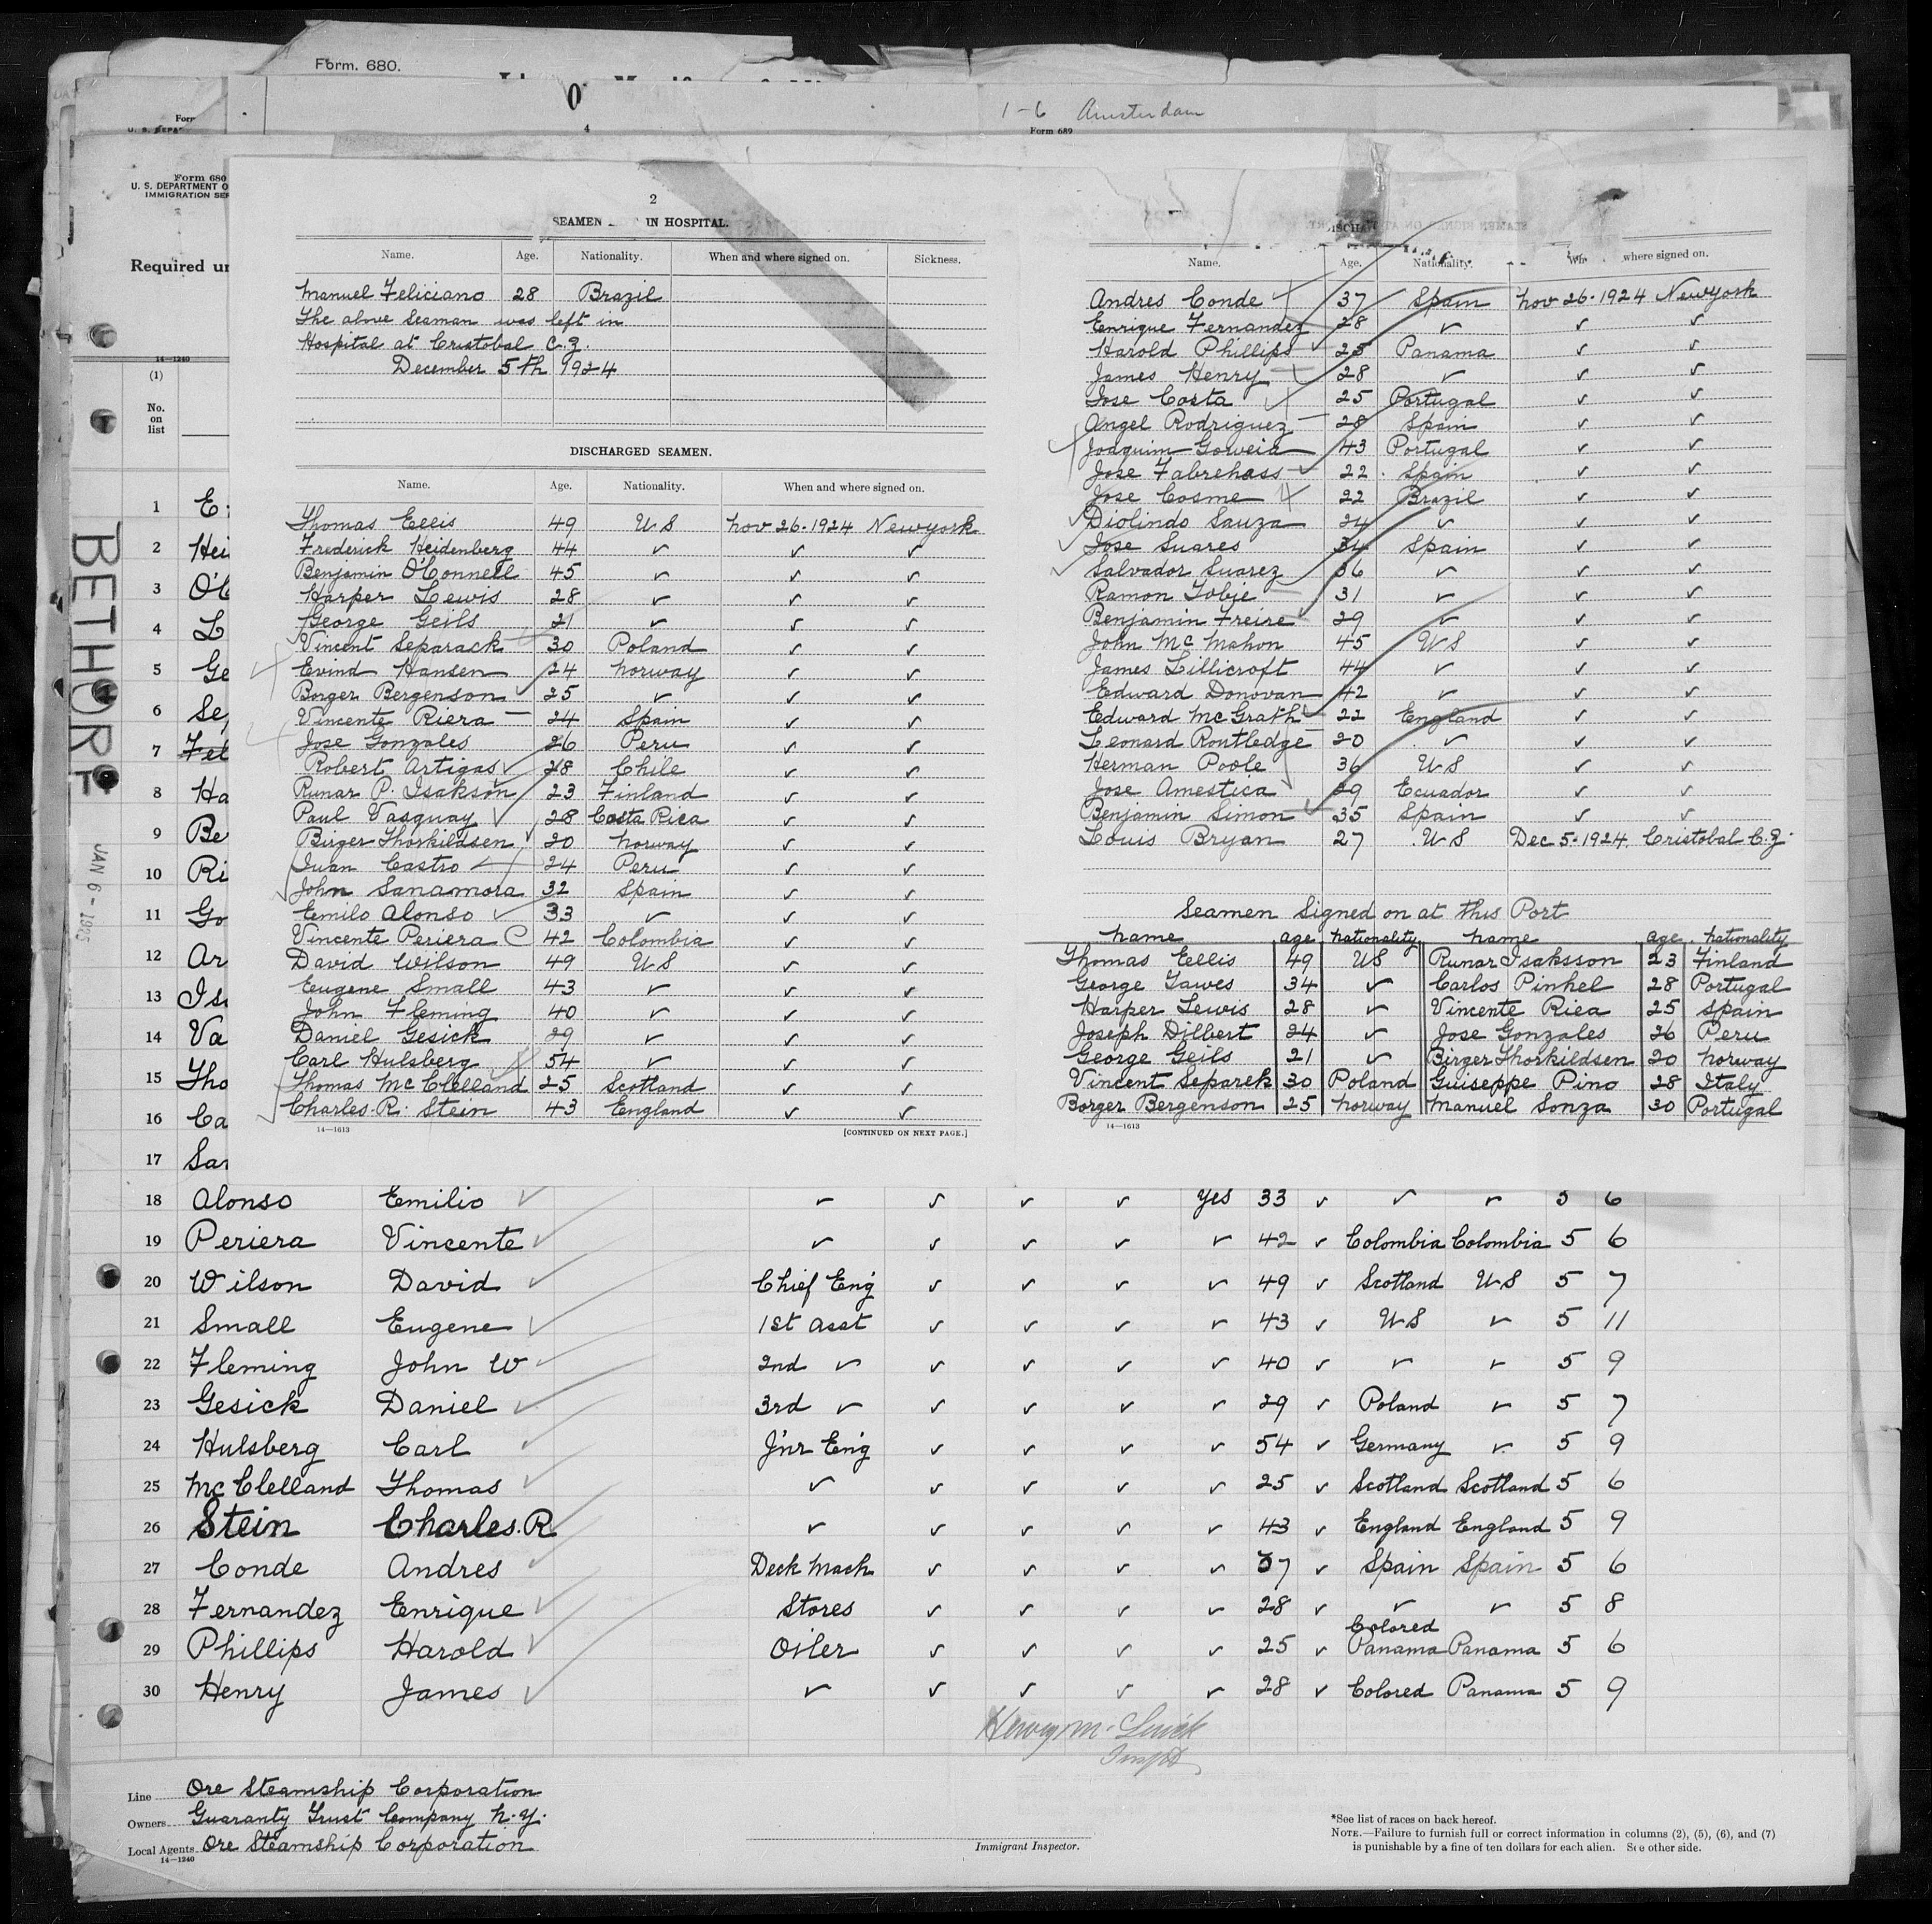 Form. 680.
1-6 Amsterdam
4
Form 689
Form 680
U. S. DEPARTMENT O
IMMIGRATION SER
Required un
14—1240
(1)
No.
on
list
BETHORE
JAN 6 - 1925
2
SEAMEN IN HOSPITAL.
Name. Age. Nationality. When and where signed on. Sickness.
Manuel Feliciano 28 Brazil
The above Seaman was left in
Hospital at Cristobal C.Z.
December 5th 1924
DISCHARGED SEAMEN.
Name. Age. Nationality. When and where signed on.
Thomas Eellis 49 US Nov 26-1924 New york
Frederick Heidenberg 44 ✓ ✓ ✓
Benjamin O'Connell 45 ✓ ✓ ✓
Harper Lewis 28 ✓ ✓ ✓
George Geils 21 ✓ ✓ ✓
Vincent Separack 30 Poland ✓ ✓
Evind Hansen 24 Norway ✓ ✓
Borger Bergenson 25 ✓ ✓ ✓
Vincente Riera 24 Spain ✓ ✓
Jose Gonzales 26 Peru ✓ ✓
Robert Artigas 28 Chile ✓ ✓
Runar P. Isakson 23 Finland ✓ ✓
Paul Vasquay 28 Costa Rica ✓ ✓
Birger Thorkildsen 20 Norway ✓ ✓
Juan Castro 24 Peru ✓ ✓
John Sanamora 32 Spain ✓ ✓
Eemilo Alonso 33 ✓ ✓ ✓
Vincente Periera C 42 Colombia ✓ ✓
David Wilson 49 US ✓ ✓
Eugene Small 43 ✓ ✓ ✓
John Fleming 40 ✓ ✓ ✓
Daniel Gesick 29 ✓ ✓ ✓
Carl Hulsberg 54 ✓ ✓ ✓
Thomas McClelland 25 Scotland ✓ ✓
Charles. R. Stein 43 England ✓ ✓
14—1613 [CONTINUED ON NEXT PAGE.]
Name. Age. Nationality. where signed on.
Andres Conde 37 Spain Nov 26-1924 New york
Enrique Fernandez 28 ✓ ✓ ✓
Harold Phillips 25 Panama ✓ ✓
James Henry 28 ✓ ✓ ✓
Jose Costa 25 Portugal ✓ ✓
Angel Rodriguez 28 Spain ✓ ✓
Joaquim Goweia 43 Portugal ✓ ✓
Jose Fabrehass 22 Spain ✓ ✓
Jose Cosme 22 Brazil ✓ ✓
Diolindo Sauza 24 ✓ ✓ ✓
Jose Suares 34 Spain ✓ ✓
Salvador Suarez 36 ✓ ✓ ✓
Ramon Tobje 31 ✓ ✓ ✓
Benjamin Freire 29 ✓ ✓ ✓
John McMahon 45 US ✓ ✓
James Lillicroft 44 ✓ ✓ ✓
Edward Donovan 42 ✓ ✓ ✓
Edward McGrath 22 England ✓ ✓
Leonard Routledge 20 ✓ ✓ ✓
Herman Poole 36 US ✓ ✓
Jose Amestica 29 Ecuador ✓ ✓
Benjamin Simon 35 Spain ✓ ✓
Louis Bryan 27 US Dec 5-1924 Cristobal C.Z.
Seamen Signed on at this Port
name age nationality name age nationality
Thomas Eellis 49 US Runar Isaksson 23 Finland
George Tawes 34 ✓ Carlos Pinhel 28 Portugal
Harper Lewis 28 ✓ Vincente Riea 25 Spain
Joseph Dilbert 24 ✓ Jose Gonzales 26 Peru
George Geils 21 ✓ Birger Thorkildsen 20 Norway
Vincent Separek 30 Poland Guiseppe Pino 28 Italy
Borger Bergenson 25 Norway Manuel Sonza 30 Portugal
14—1613
1 E
2 Hei
3 O'C
4 L
5 Ge
6 Se
7 Fel
8 Ha
9 Be
10 Ri
11 Go
12 Ar
13 Isa
14 Va
15 Tho
16 Ca
17 San
18 Alonso Eemilio ✓ ✓ ✓ ✓ ✓ yes 33 ✓ ✓ ✓ 5 6
19 Periera Vincente ✓ ✓ ✓ ✓ ✓ ✓ 42 ✓ Colombia Colombia 5 6
20 Wilson David ✓ Chief Eng ✓ ✓ ✓ ✓ 49 ✓ Scotland US 5 7
21 Small Eugene ✓ 1st Asst ✓ ✓ ✓ ✓ 43 ✓ US ✓ 5 11
22 Fleming John W ✓ 2nd ✓ ✓ ✓ ✓ ✓ 40 ✓ ✓ ✓ 5 9
23 Gesick Daniel ✓ 3rd ✓ ✓ ✓ ✓ ✓ 29 ✓ Poland ✓ 5 7
24 Hulsberg Carl ✓ J'nr Eng ✓ ✓ ✓ ✓ 54 ✓ Germany ✓ 5 9
25 McClelland Thomas ✓ ✓ ✓ ✓ ✓ ✓ 25 ✓ Scotland Scotland 5 6
26 Stein Charles. R. ✓ ✓ ✓ ✓ ✓ 43 ✓ England England 5 9
27 Conde Andres ✓ Deck Mach ✓ ✓ ✓ ✓ 37 ✓ Spain Spain 5 6
28 Fernandez Enrique ✓ Stores ✓ ✓ ✓ ✓ 28 ✓ ✓ ✓ 5 8
Colored
29 Phillips Harold ✓ Oiler ✓ ✓ ✓ ✓ 25 ✓ Panama Panama 5 6
30 Henry James ✓ ✓ ✓ ✓ ✓ ✓ 28 ✓ Colored Panama 5 9
Line Ore Steamship Corporation
Owners Guaranty Trust Company N.Y.
Local Agents Ore Steamship Corporation
14—1240
Immigrant Inspector.
*See list of races on back hereof.
NOTE.—Failure to furnish full or correct information in columns (2), (5), (6), and (7)
is punishable by a fine of ten dollars for each alien. See other side.